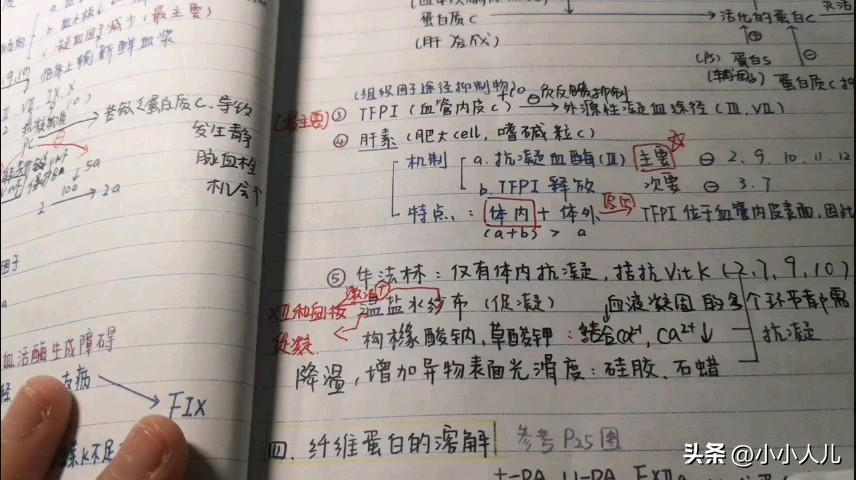 b. 血小板↓
c. 凝血因子减少(最主要)
临床上输新鲜血浆
若缺乏蛋白质C. 导致
发生静
脉血栓
机会个
5a
2 → 2a
因子
血活酶生成障碍
友病
FIX
素K不足
蛋白质C → 活化的蛋白C
(肝 合成) ⊕ ⊖
(PS) 蛋白S
(辅因子) 蛋白质C抑
(组织因子途径抑制物)
(最主要) ③ TFPI (血管内皮C) ⊖负反馈抑制 → 外源性凝血途径 (III. VII)
④ 肝素 (肥大cell, 嗜碱粒C)
机制 a. 抗凝血酶(III) 主要 ⊖ 2. 9. 10. 11. 12
b. TFPI 释放 次要 ⊖ 3. 7
特点: 体内 + 体外 → TFPI 位于血管内皮表面, 因此
(a+b) > a
⑤ 华法林: 仅有体内抗凝, 拮抗Vit K (2, 7, 9, 10)
XII和血板 激活 温盐水纱布 (促凝) 血液凝固的多个环节都需
促凝 枸橼酸钠, 草酸钾: 结合Ca²⁺, Ca²⁺↓ 抗凝
降温, 增加异物表面光滑度: 硅胶. 石蜡
四. 纤维蛋白的溶解 参考P25图
t-PA u-PA FXIIa
头条 @小小人儿